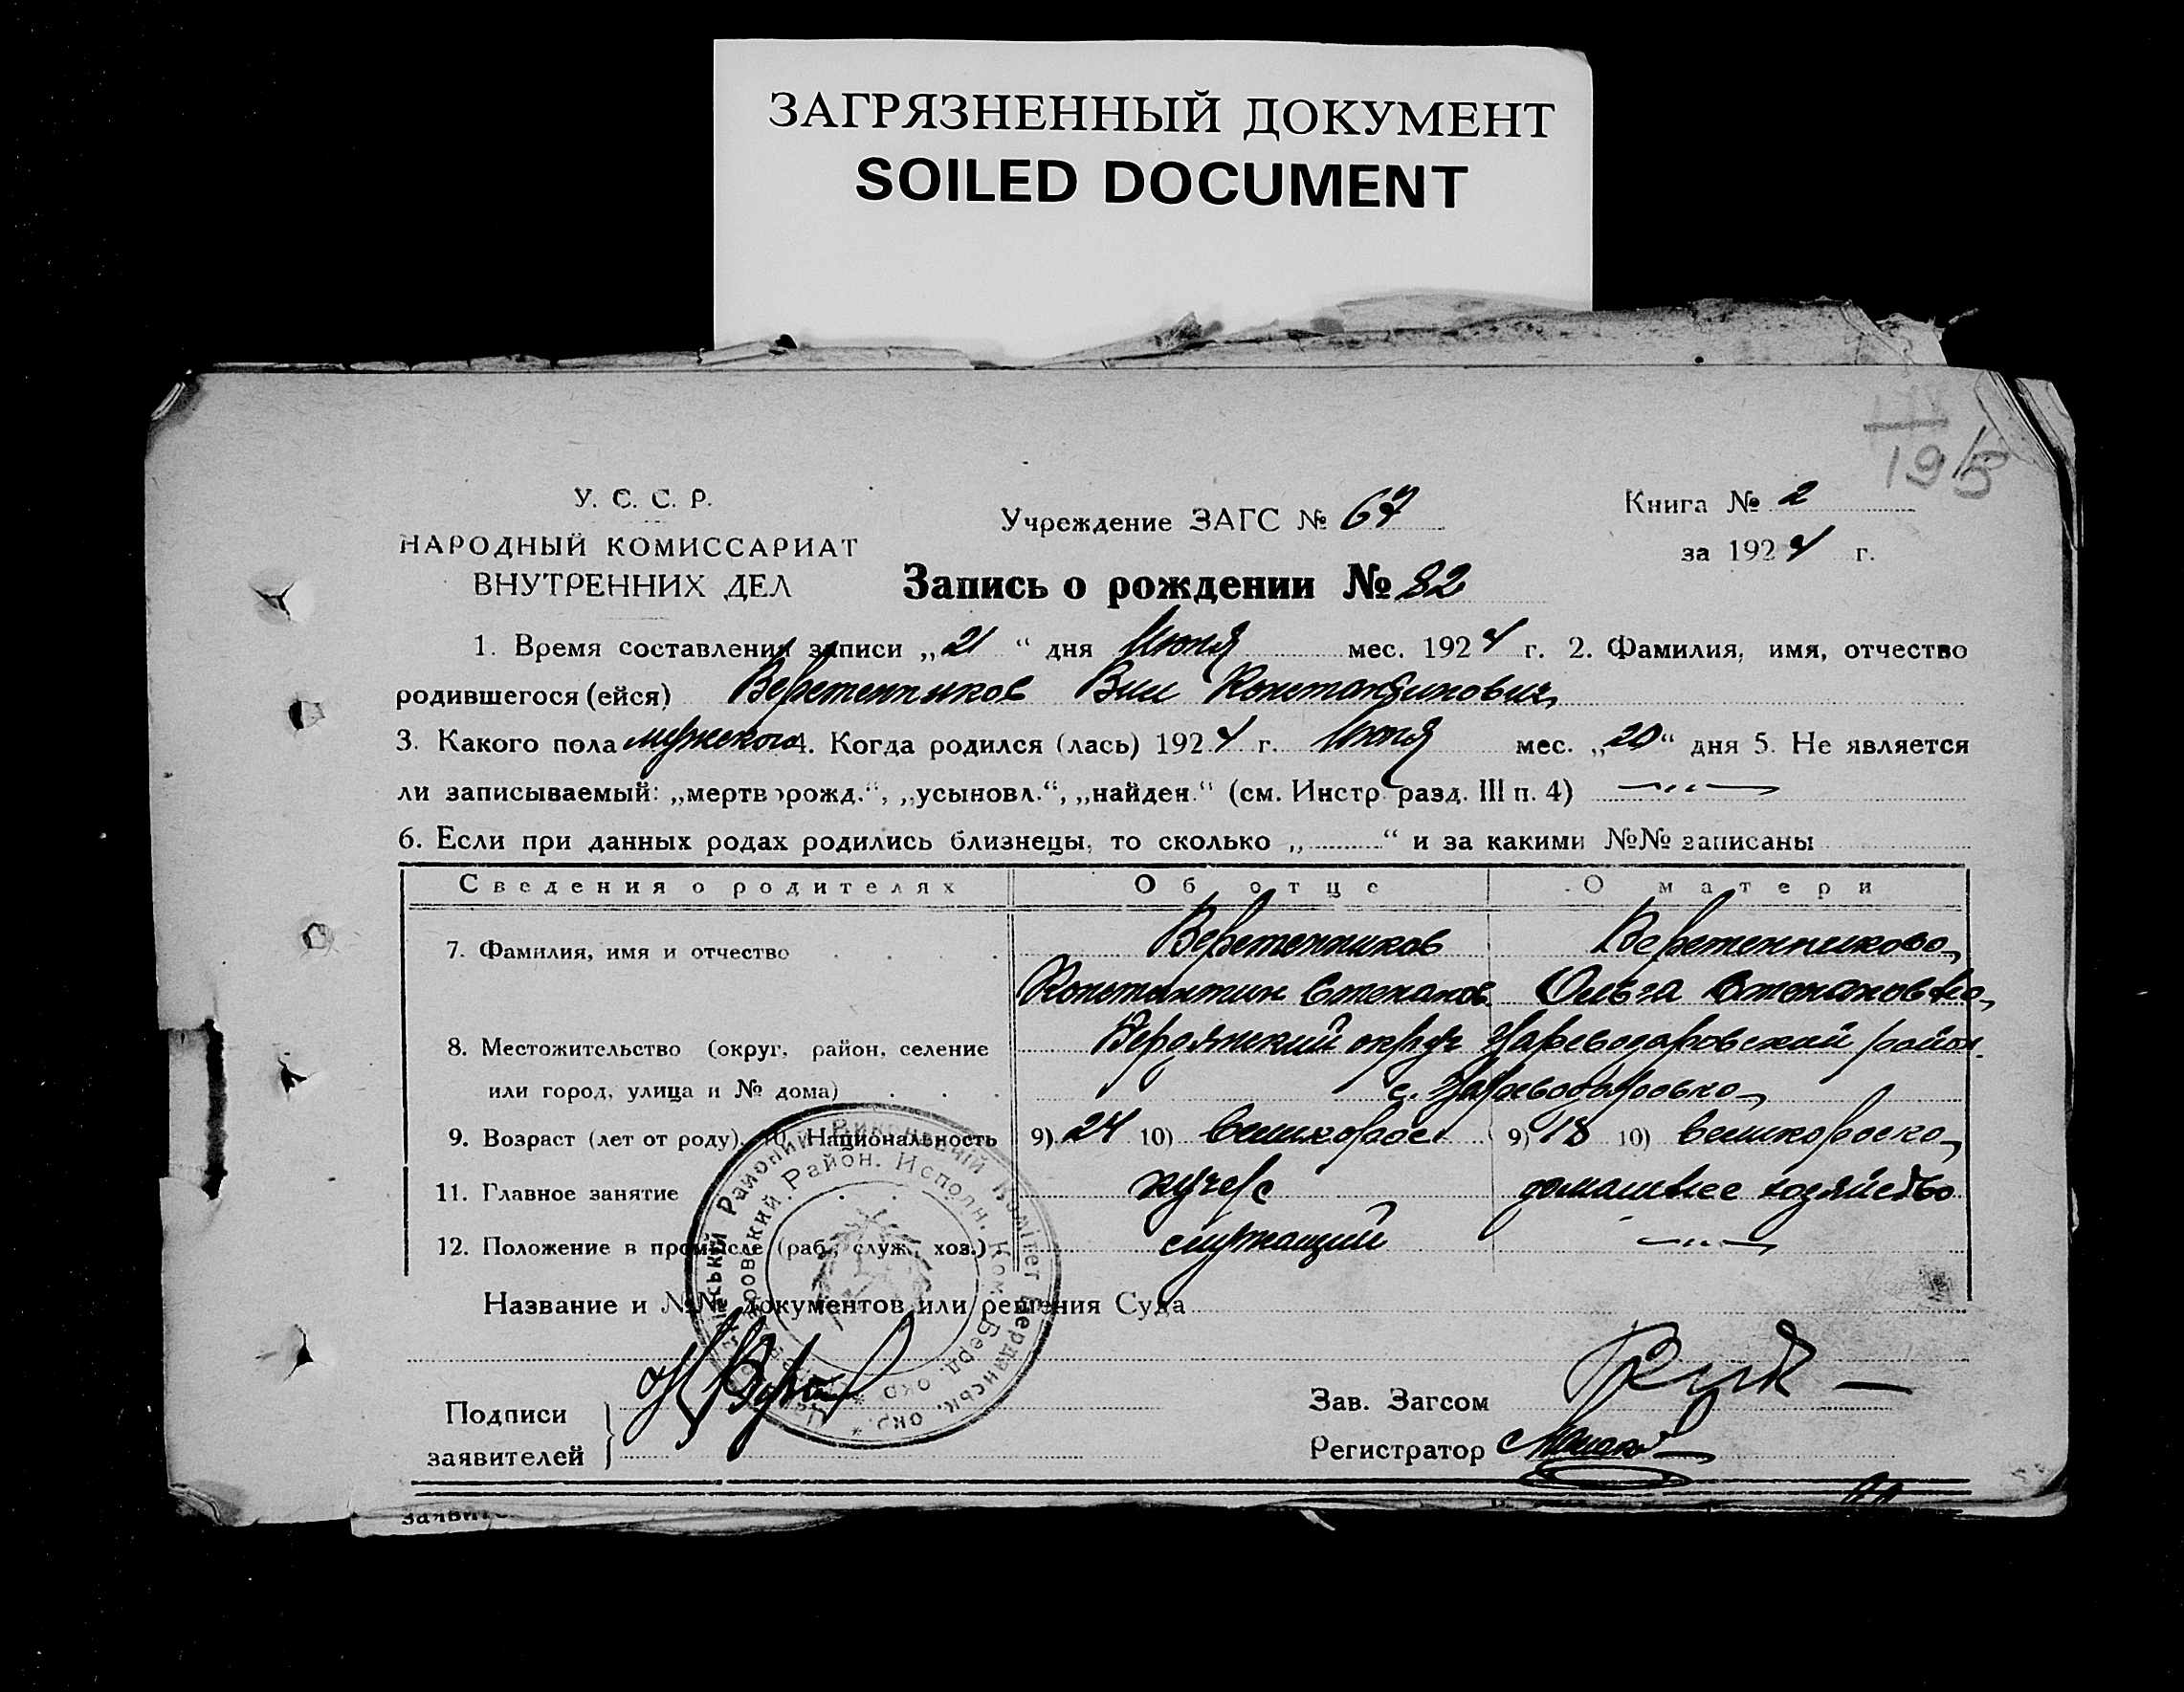 ЗАГРЯЗНЕННЫЙ ДОКУМЕНТ
SOILED DOCUMENT
У. С. С. Р.
НАРОДНЫЙ КОМИССАРИАТ
ВНУТРЕННИХ ДЕЛ
Учреждение ЗАГС № 67
Книга № 2
за 1924 г.
Запись о рождении № 82
1. Время составления записи „21“ дня Июня мес. 1924 г. 2. Фамилия, имя, отчество
родившегося (ейся) Веретенников Вил Константинович
3. Какого пола мужского 4. Когда родился (лась) 1924 г. Июня мес. „20“ дня 5. Не является
ли записываемый: „мертворожд.“, „усыновл.“, „найден.“ (см. Инстр. разд. III п. 4) —„—
6. Если при данных родах родились близнецы, то сколько „..........“ и за какими №№ записаны
Сведения о родителях Об отце О матери
7. Фамилия, имя и отчество Веретенников Веретенникова
Константин Степанов. Ольга Степановна
8. Местожительство (округ, район, селение Бердянский округ Цареводаровский район
или город, улица и № дома) с. Цареводаровка
9. Возраст (лет от роду). 10. Национальность 9) 24 10) великоросс 9) 18 10) великороска
11. Главное занятие кучер домашнее хозяйство
12. Положение в промысле (раб., служ., хоз.) служащий —„—
Название и №№ документов или решения Суда
Подписи
заявителей
Зав. Загсом
Регистратор